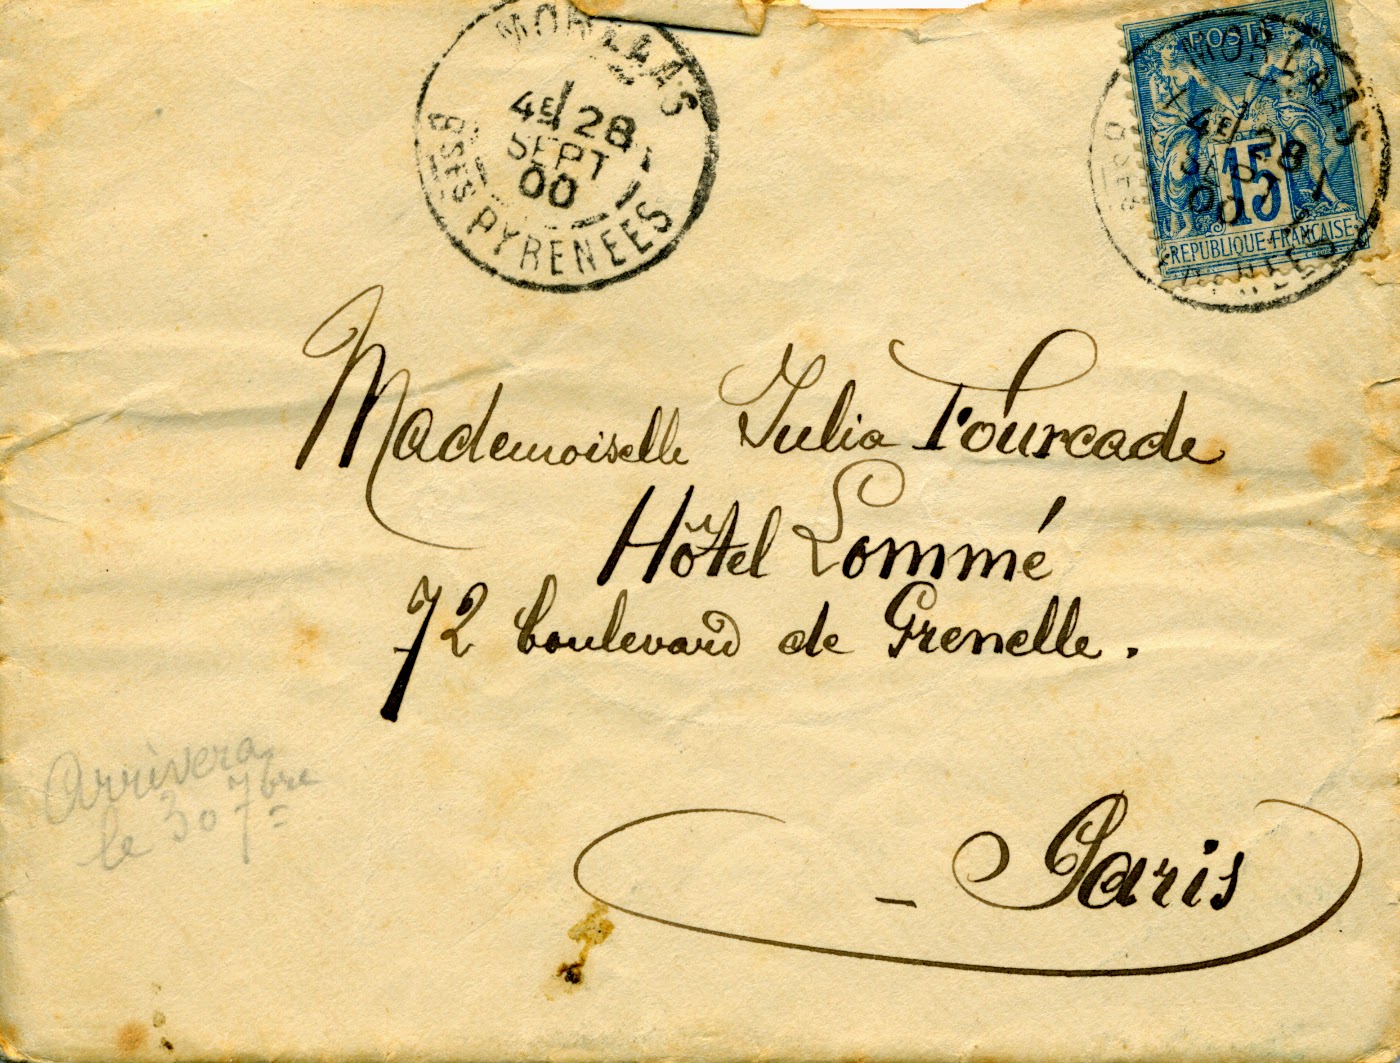 MORLAAS
4E 28
SEPT
00
BSES PYRENEES
POSTES
15
REPUBLIQUE FRANÇAISE
MORLAAS
4E 28
SEPT
00
Mademoiselle Julia Fourcade
Hôtel Lommé
72 boulevard de Grenelle.
Arrivera
le 30 7bre
- Paris